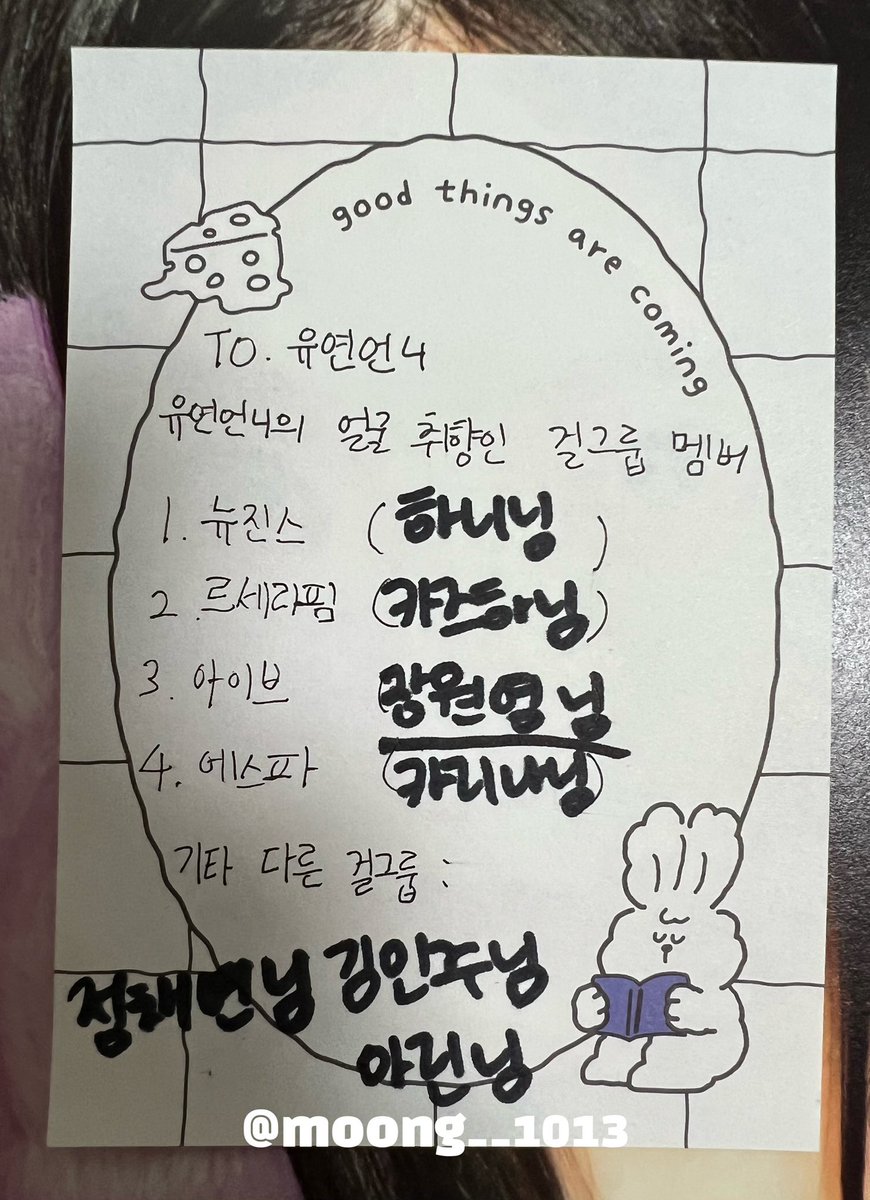 good things are coming
TO. 유연언니
유연언니의 얼굴 취향인 걸그룹 멤버
1. 뉴진스 (하니님)
2. 르세라핌 (카즈하님)
3. 아이브 (장원영님
4. 에스파 (카리나님)
기타 다른 걸그룹 :
정채연님 김민주님
아린님
@moong__1013